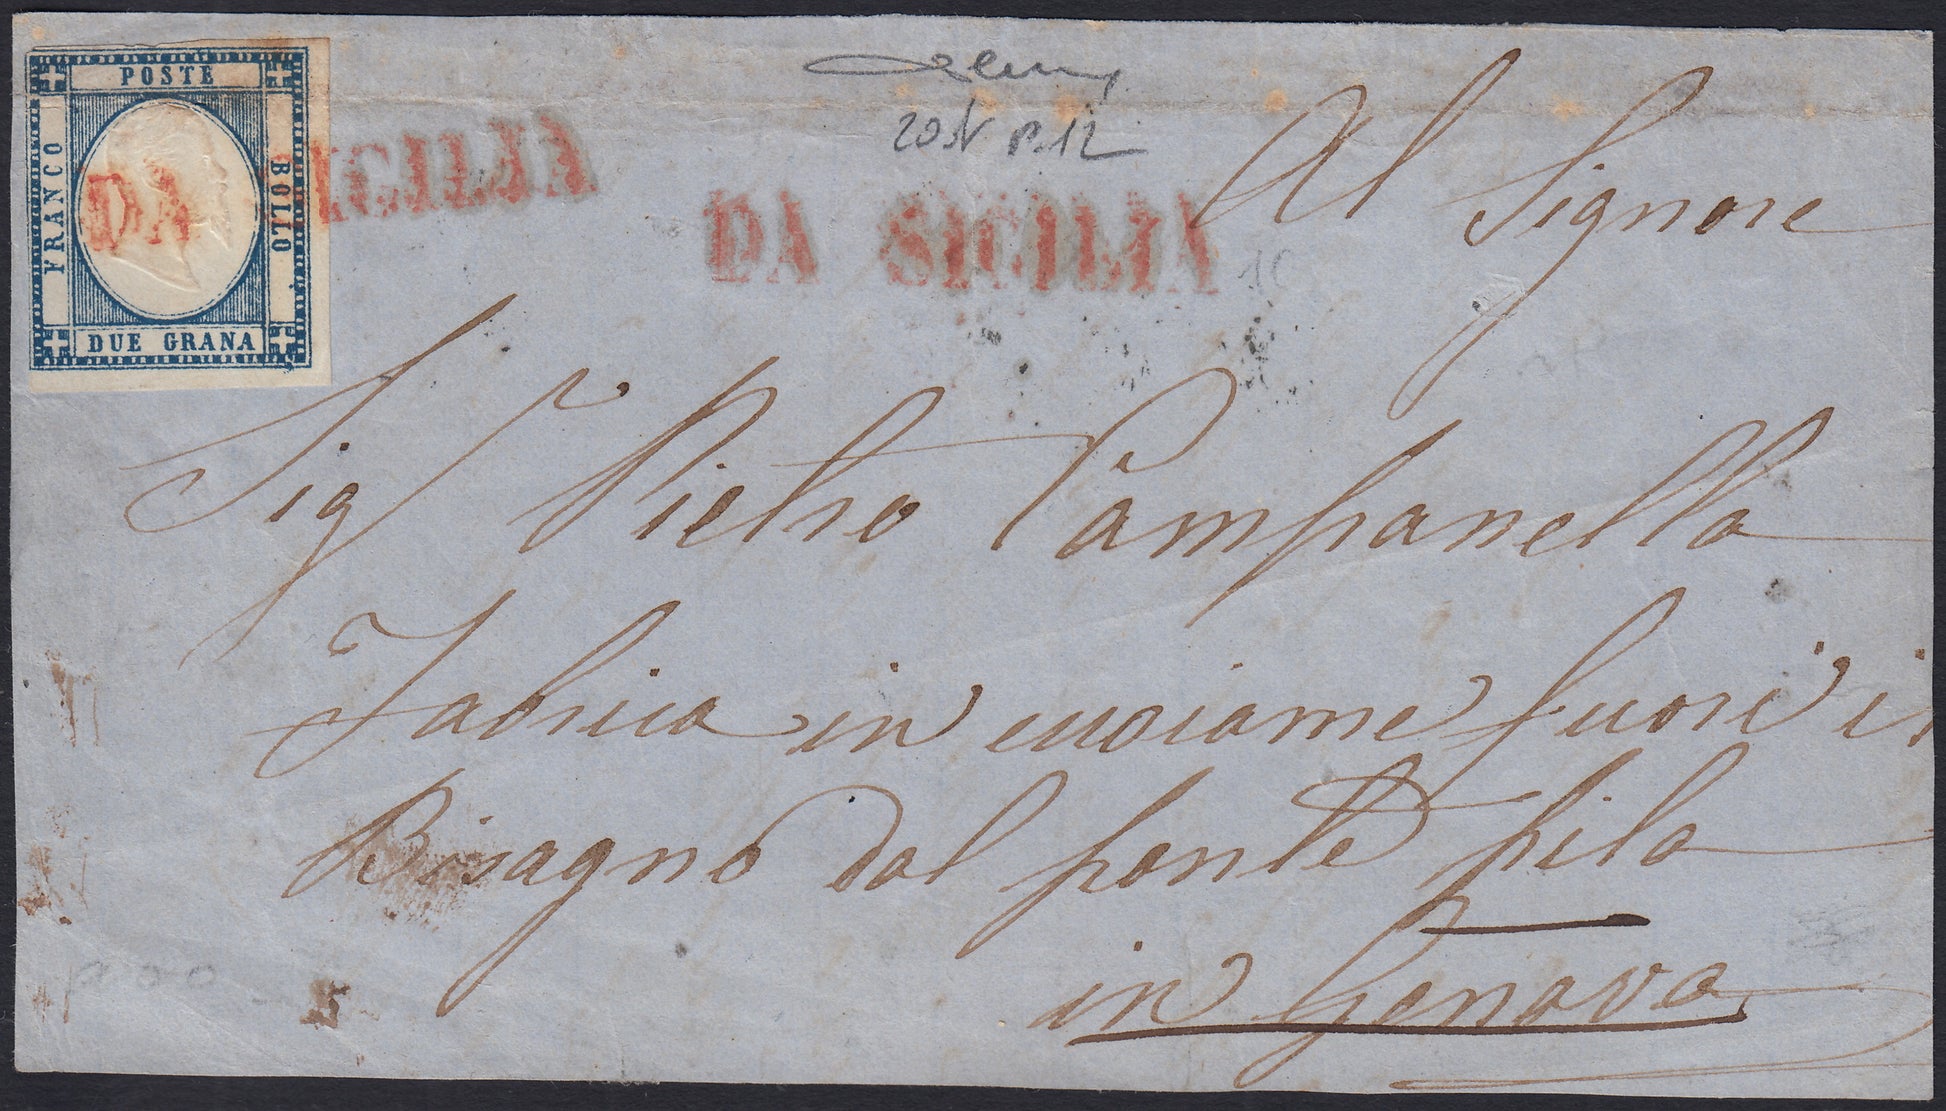 POSTE
FRANCO
BOLLO
DUE GRANA
DA SICILIA
DA SICILIA
20N P.12
10
Al Signore
Sig.r Pietro Campanella
Fabrica in curiame fuori i
Bisagno dal ponte pila
in Genova